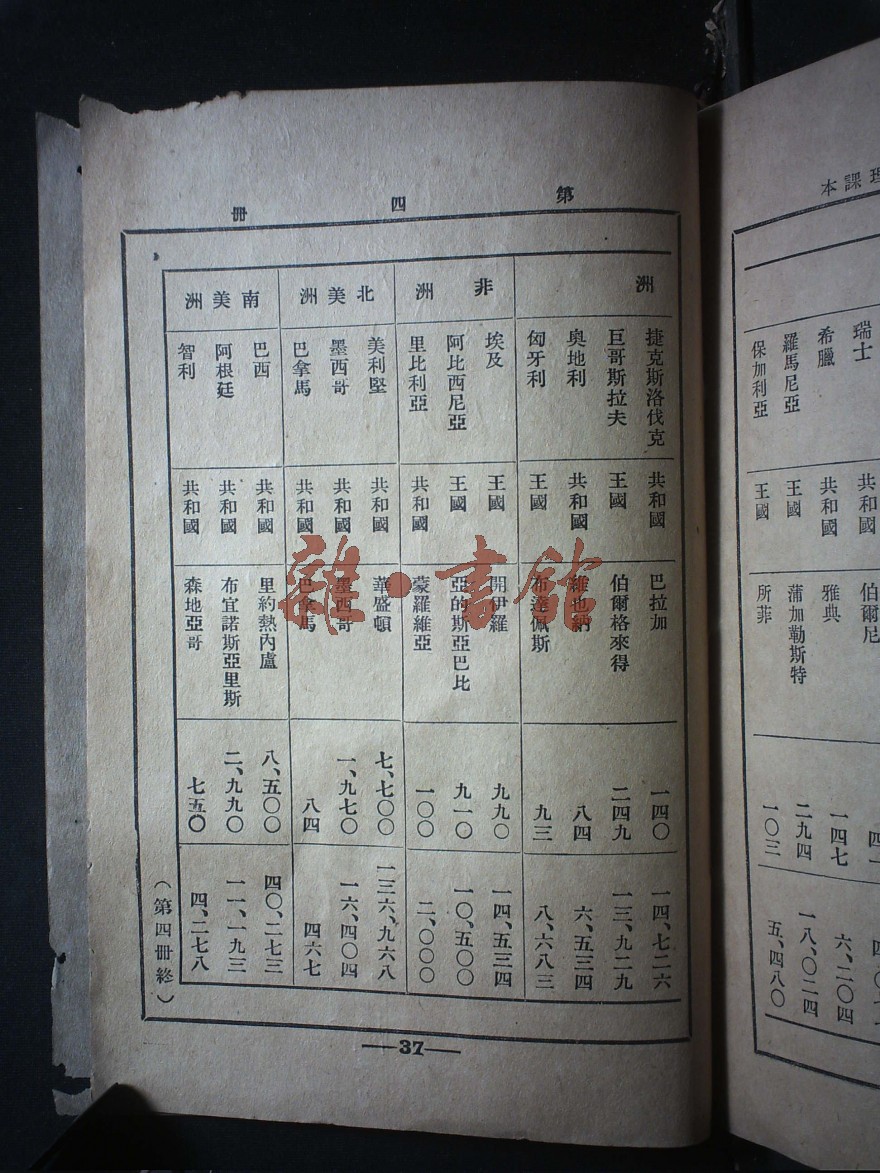 理課本
瑞士
共和國
伯爾尼
希臘
共和國
雅典
一四七
六、二〇四
羅馬尼亞
王國
蒲加勒斯特
二九四
一八、〇二四
保加利亞
王國
所菲
一〇三
五、四八〇
第四冊
洲
捷克斯洛伐克
共和國
巴拉加
一四〇
一四、七二六
巨哥斯拉夫
王國
伯爾格來得
二四九
一三、九二九
奧地利
共和國
維也納
八四
六、五三四
匈牙利
王國
布達佩斯
九三
八、六八三
非洲
埃及
王國
開伊羅
九九〇
一四、五三四
阿比西尼亞
王國
亞的斯亞巴比
九一〇
一〇、五〇〇
里比利亞
共和國
蒙羅維亞
一〇〇
二、〇〇〇
北美洲
美利堅
共和國
華盛頓
七、七〇〇
一三六、九六八
墨西哥
共和國
墨西哥
一、九七〇
一六、四〇四
巴拿馬
共和國
巴拿馬
八四
四六七
南美洲
巴西
共和國
里約熱內盧
八、五〇〇
四〇、二七三
阿根廷
共和國
布宜諾斯亞里斯
二、九九〇
一一、一九三
智利
共和國
森地亞哥
七五〇
四、二七八
（第四冊終）
—37—
雜·書館